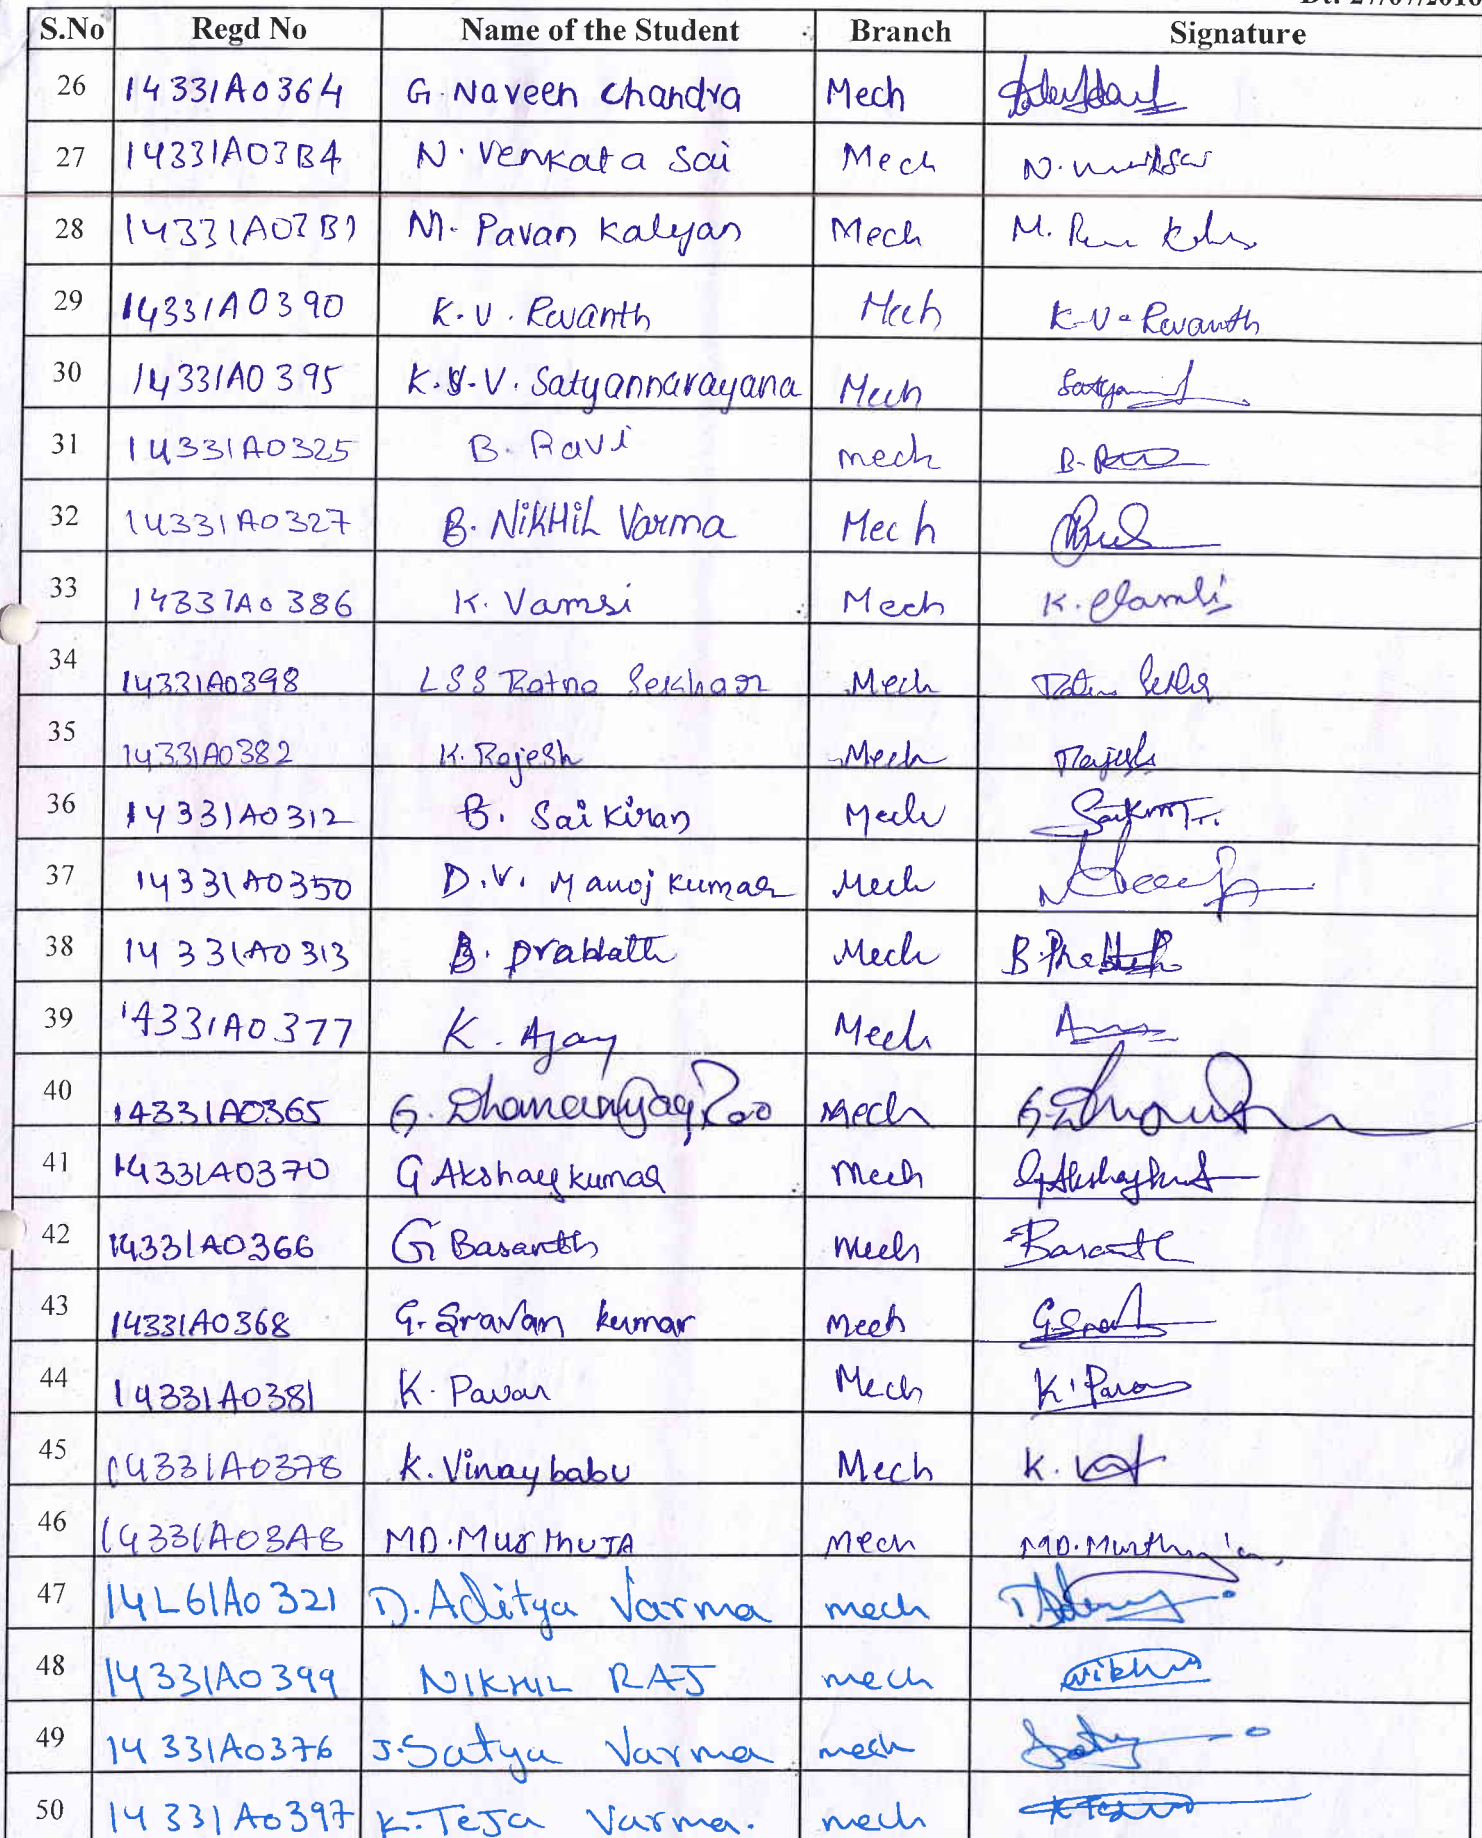 S.No Regd No Name of the Student Branch Signature
26 14331A0364 G. Naveen Chandra Mech
27 14331A03B4 N. Venkata Sai Mech
28 14331A03B1 M. Pavan Kalyan Mech
29 14331A0390 K.V. Revanth Mech K.V. Revanth
30 14331A0395 K.S.V. Satyannarayana Mech
31 14331A0325 B. Ravi mech
32 14331A0327 B. NiKHiL Varma Mech
33 14331A0386 K. Vamsi Mech K. Vamsi
34 14331A0398 LSS Ratna Sekhar Mech
35 14331A0382 K. Rajesh Mech Rajesh
36 14331A0312 B. Sai Kiran Mech
37 14331A0350 D.V. Manoj Kumar Mech
38 14331A0313 B. prabhath Mech
39 14331A0377 K. Ajay Mech
40 14331A0365 G. Dhananjay Rao Mech
41 14331A0370 G Akshay kumar Mech
42 14331A0366 G Basanth Mech Basanth
43 14331A0368 G. Sravan kumar Mech
44 14331A0381 K. Pavan Mech K. Pavan
45 14331A0378 K. Vinay babu Mech
46 14331A03A8 MD. MurthuJA Mech
47 14L61A0321 D. Aditya Varma mech
48 14331A0399 NIKHIL RAJ mech
49 14331A0376 J. Satya Varma mech
50 14331A0397 K. TeJa Varma. mech